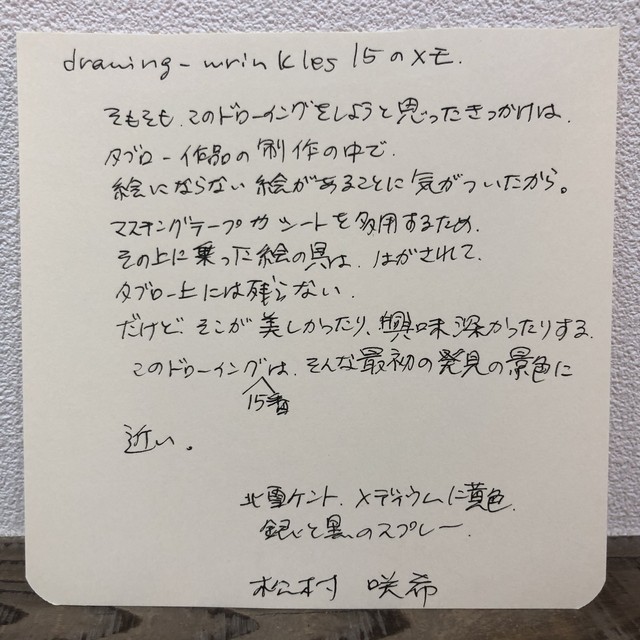 drawing-wrinkles 15のメモ.
そもそも、このドローイングをしようと思ったきっかけは、
タブロー作品の制作の中で、
絵にならない絵があることに気がついたから。
マスキングテープやシートを多用するため、
その上に乗った絵の具は、はがされて、
タブロー上には残らない、
だけど そこが美しかったり、興味深かったりする.
このドローイングは、そんな最初の発見の景色に
15番
近い。
北雪ケント、メディウムに黄色、
銀と黒のスプレー.
松村 咲希